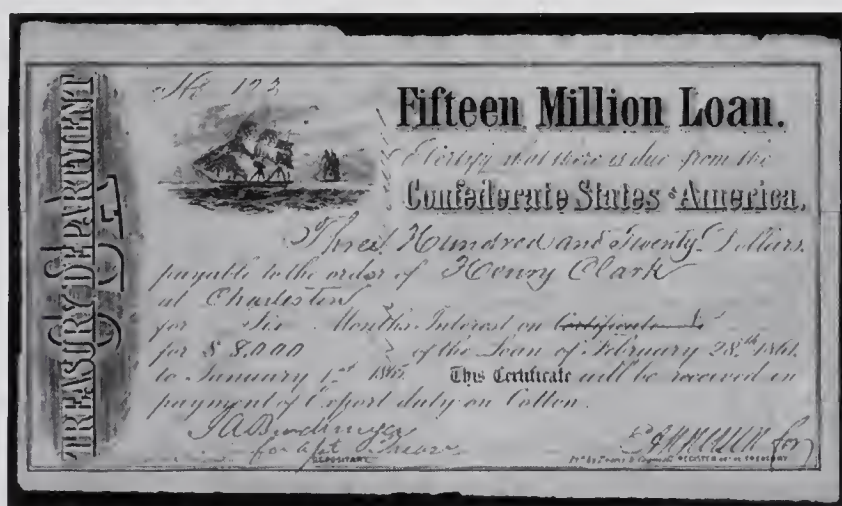 TREASURY DEPARTMENT
C.S.A.
No. 123
Fifteen Million Loan.
I certify that there is due from the
Confederate States of America,
Three Hundred and Twenty Dollars,
payable to the order of Henry Clark
at Charleston
for Six Months Interest on
for $ 8,000 of the Loan of February 28th 1861.
to January 1st This Certificate will be received in
payment of Export duty on Cotton.
for Treasr
DEPOSITARY for
REGISTER OF THE TREASURY